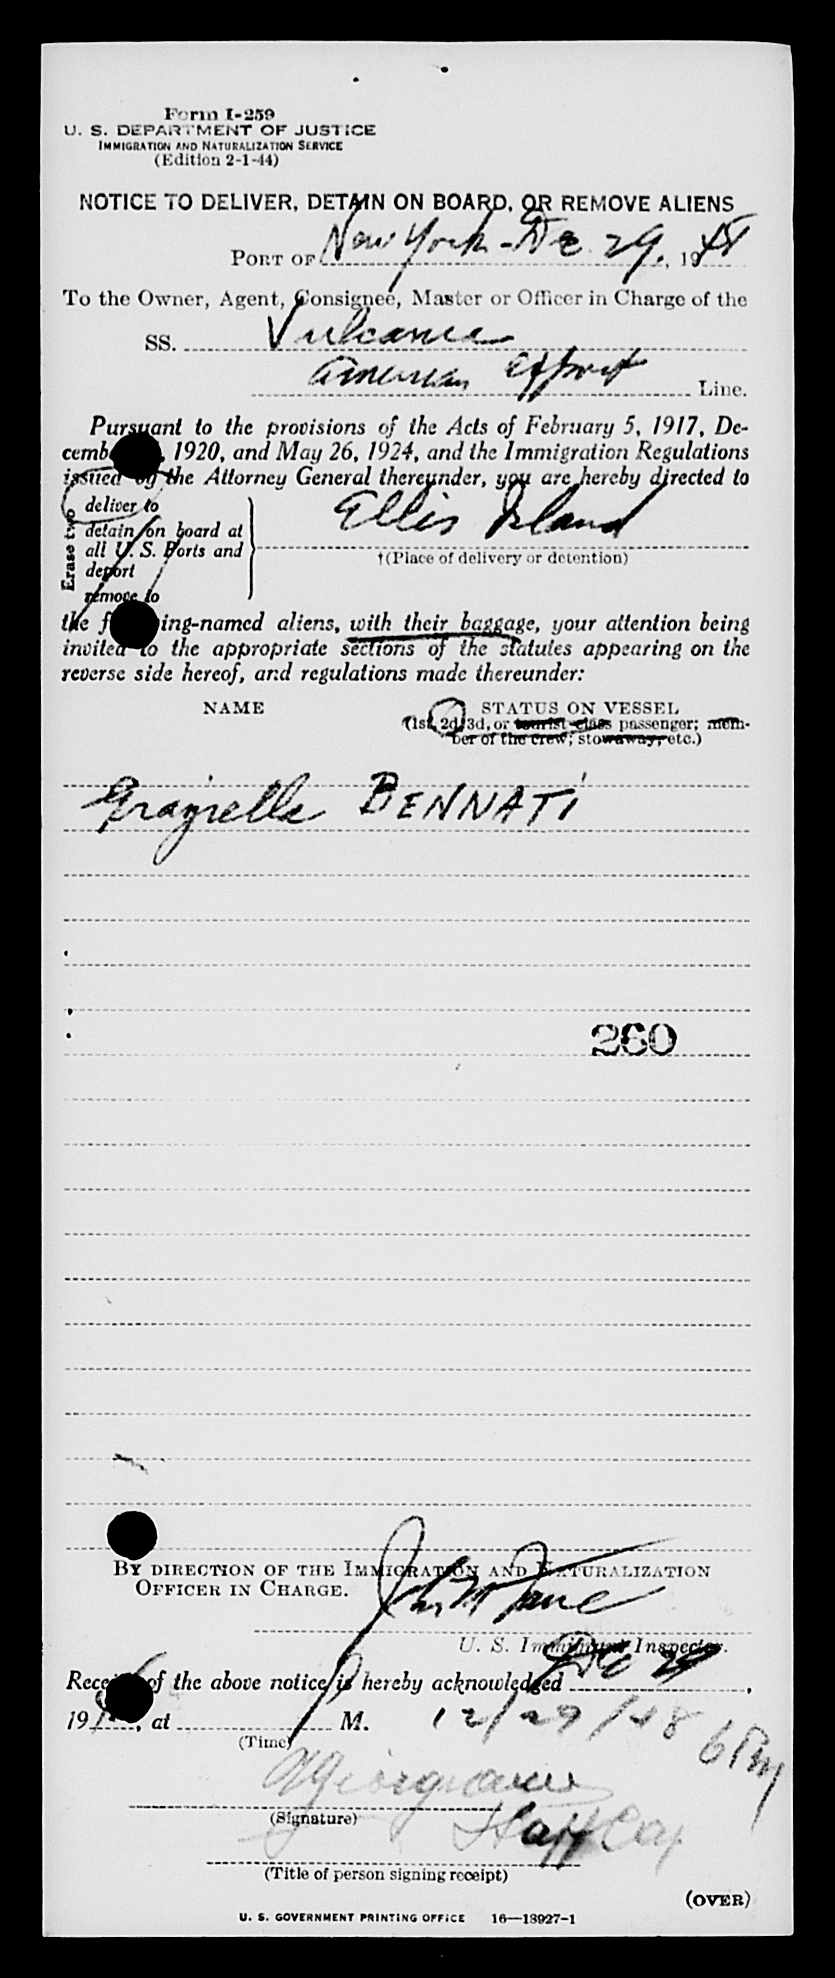 Form I-259
U. S. DEPARTMENT OF JUSTICE
IMMIGRATION AND NATURALIZATION SERVICE
(Edition 2-1-44)
NOTICE TO DELIVER, DETAIN ON BOARD, OR REMOVE ALIENS
PORT OF New York - Dec 29, 1948
To the Owner, Agent, Consignee, Master or Officer in Charge of the
SS. Vulcania
American Export Line.
Pursuant to the provisions of the Acts of February 5, 1917, De-
cemb , 1920, and May 26, 1924, and the Immigration Regulations
issued by the Attorney General thereunder, you are hereby directed to
Erase two
deliver to
detain on board at
all U. S. Ports and
deport
remove to
Ellis Island
†(Place of delivery or detention)
the f ing-named aliens, with their baggage, your attention being
invited to the appropriate sections of the statutes appearing on the
reverse side hereof, and regulations made thereunder:
NAME
STATUS ON VESSEL
(1st, 2d, 3d, or tourist-class passenger; mem-
ber of the crew; stowaway, etc.)
Graziella BENNATI
260
BY DIRECTION OF THE IMMIGRATION AND NATURALIZATION
OFFICER IN CHARGE.
U. S. Immigrant Inspector.
Receipt of the above notice is hereby acknowledged Dec 29,
19 , at M.
(Time)
12/29/48 6 PM
(Signature)
(Title of person signing receipt)
(OVER)
U. S. GOVERNMENT PRINTING OFFICE 16—13927-1